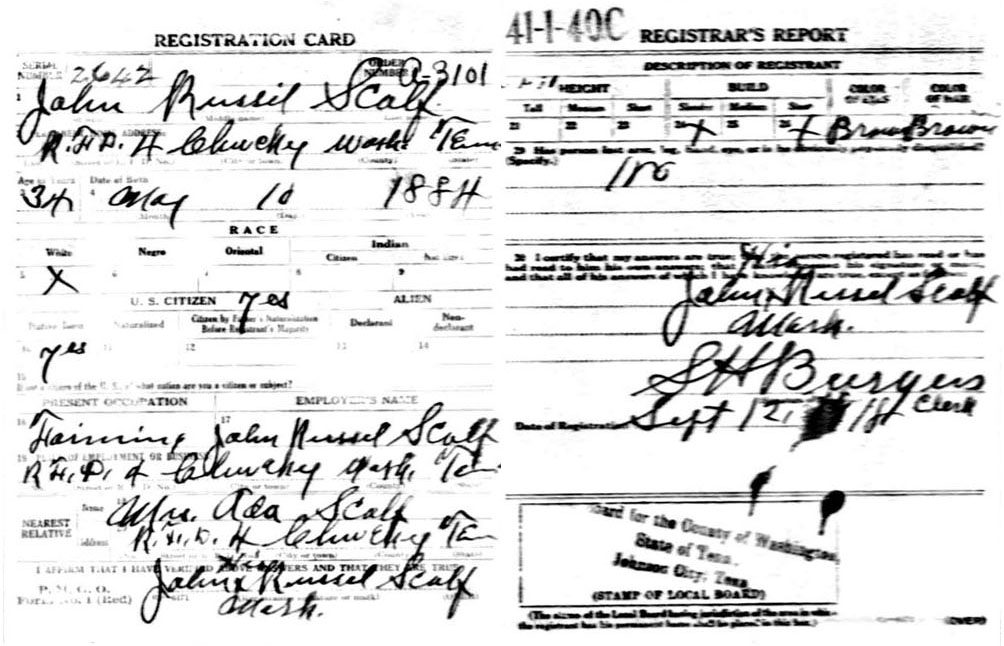 REGISTRATION CARD
SERIAL NUMBER 2642 ORDER NUMBER A-3101
1 John Russil Scalf
R.F.D. 4 Chucky Wash Ten
Age in Years Date of Birth
34 4 May 10 1884
RACE
White Negro Oriental Indian
Citizen
5 X 6 8 9
U. S. CITIZEN yes ALIEN
Native Born Naturalized Citizen by Father's Naturalization Before Registrant's Majority Declarant Non-declarant
yes 12 13 14
15
If not a citizen of the U. S., of what nation are you a citizen or subject?
PRESENT OCCUPATION EMPLOYER'S NAME
16 Farming 17 John Russel Scalf
18 PLACE OF EMPLOYMENT OR BUSINESS
R.F.D. 4 Chucky Wash. Ten
NEAREST RELATIVE Name Mrs. Ada Scalf
Address R.F.D. 4 Chucky Ten
I AFFIRM THAT I HAVE VERIFIED ABOVE ANSWERS AND THAT THEY ARE TRUE
P. M. G. O.
Form No. 1 (Red)
His
John X Russel Scalf
Mark.
41-1-40C REGISTRAR'S REPORT
DESCRIPTION OF REGISTRANT
HEIGHT BUILD COLOR OF EYES COLOR OF HAIR
Tall Medium Short Slender Medium Stout
21 22 23 24 X 25 26 X Brown Brown
29 Has person lost arm, leg, hand, eye, or is he obviously physically disqualified?
(Specify.) no
30 I certify that my answers are true; that the person registered has read or has
had read to him his own answers; that I have witnessed his signature or mark,
and that all of his answers of which I have knowledge are true, except as follows:
His
John X Russel Scalf
Mark.
S H Burgess
Clerk
Date of Registration Sept 12, 18
Board for the County of Washington,
State of Tenn.
Johnson City, Tenn.
(STAMP OF LOCAL BOARD)
(The stamp of the Local Board having jurisdiction of the area in which
the registrant has his permanent home shall be placed in this box.)
(OVER)